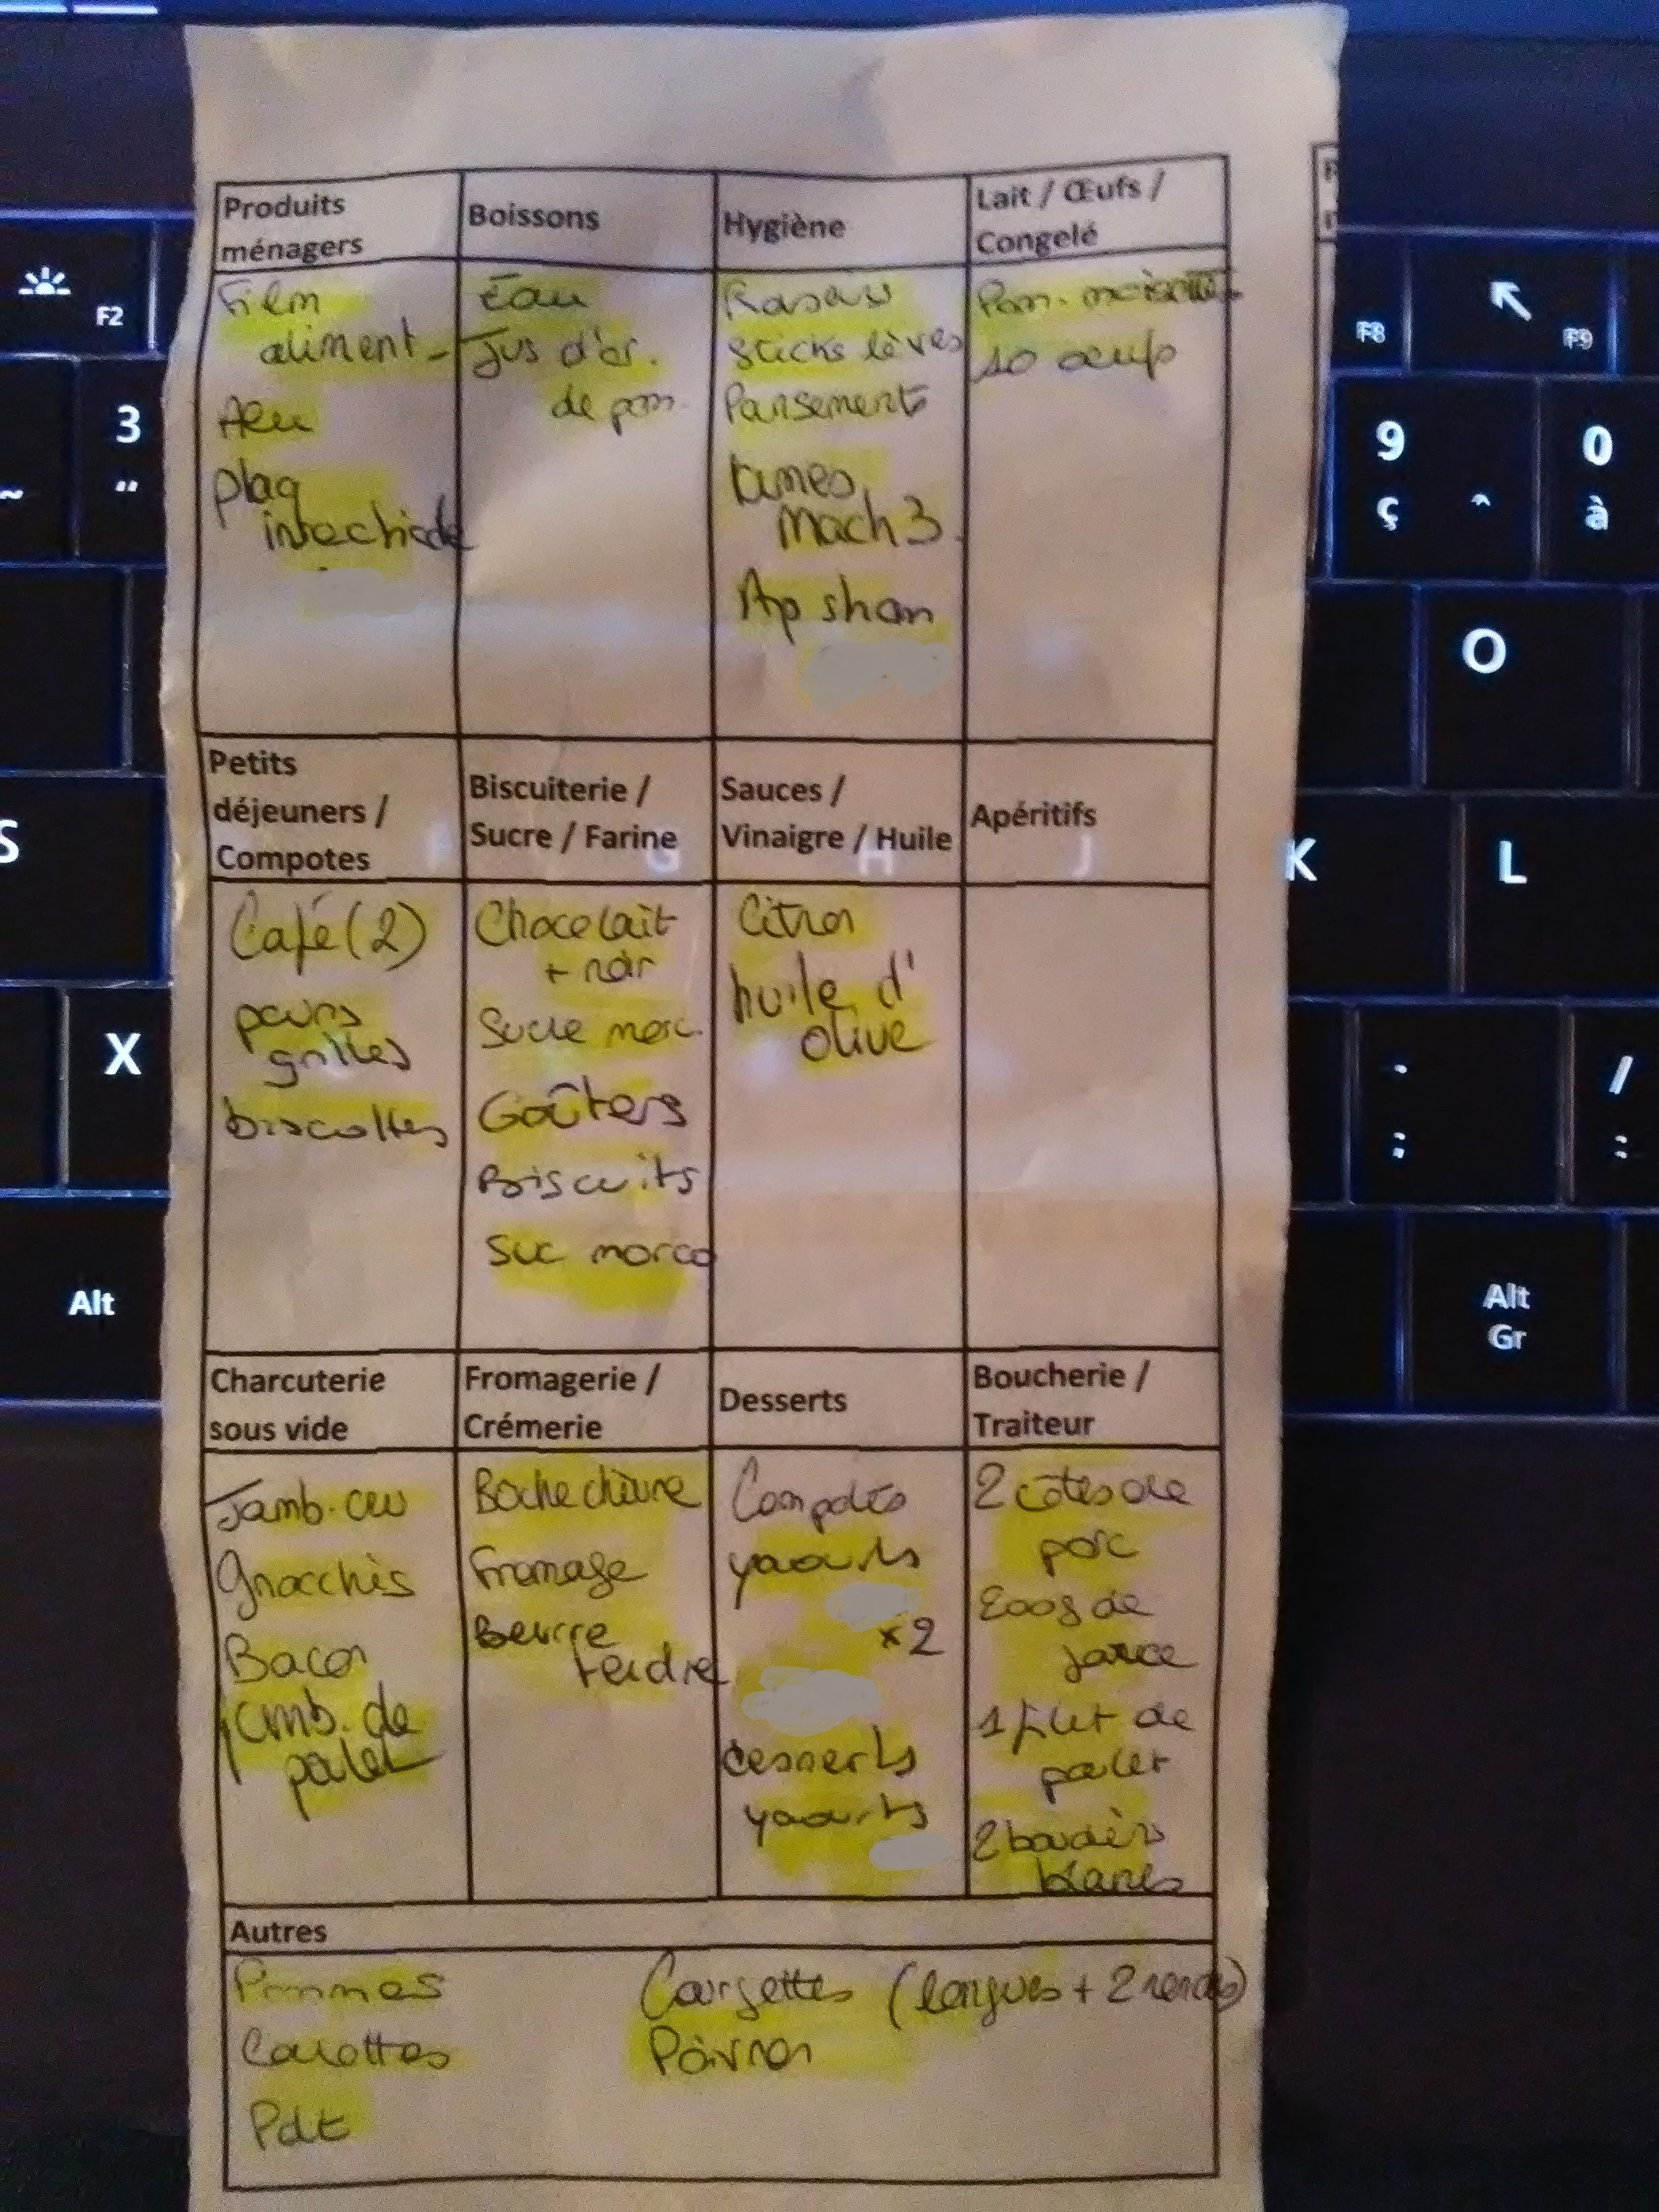 Produits
ménagers
Film
aliment-
Alu
plaq
insechicde
Boissons
Eau
Jus d'or.
de pom.
Hygiène
Rasoirs
Sticks lèvres
Pansements
lames
Mach 3
Ap sham
Lait / Œufs /
Congelé
Pom.
10 œufs
Petits
déjeuners /
Compotes
Café (2)
pains
grillés
biscottes
Biscuiterie /
Sucre / Farine
Choco lait
+ noir
Sucre morc.
Goûters
Biscuits
Suc morco
Sauces /
Vinaigre / Huile
Citron
huile d'
olive
Apéritifs
Charcuterie
sous vide
Jamb. cru
Gnocchis
Bacon
jamb. de
poulet
Fromagerie /
Crémerie
Bûche chèvre
Fromage
Beurre
tendre
Desserts
Compotes
yaourts
x2
desserts
yaourts
Boucherie /
Traiteur
2 côtes de
porc
200g de
farce
1 filet de
poulet
2 boudins
blancs
Autres
Pommes
Carottes
Pdt
Courgettes (longues + 2 rondes)
Poivron
F2
3
"
~
S
X
Alt
F8
F9
9
ç
^
0
à
O
K
L
G
H
J
.
;
/
:
Alt
Gr